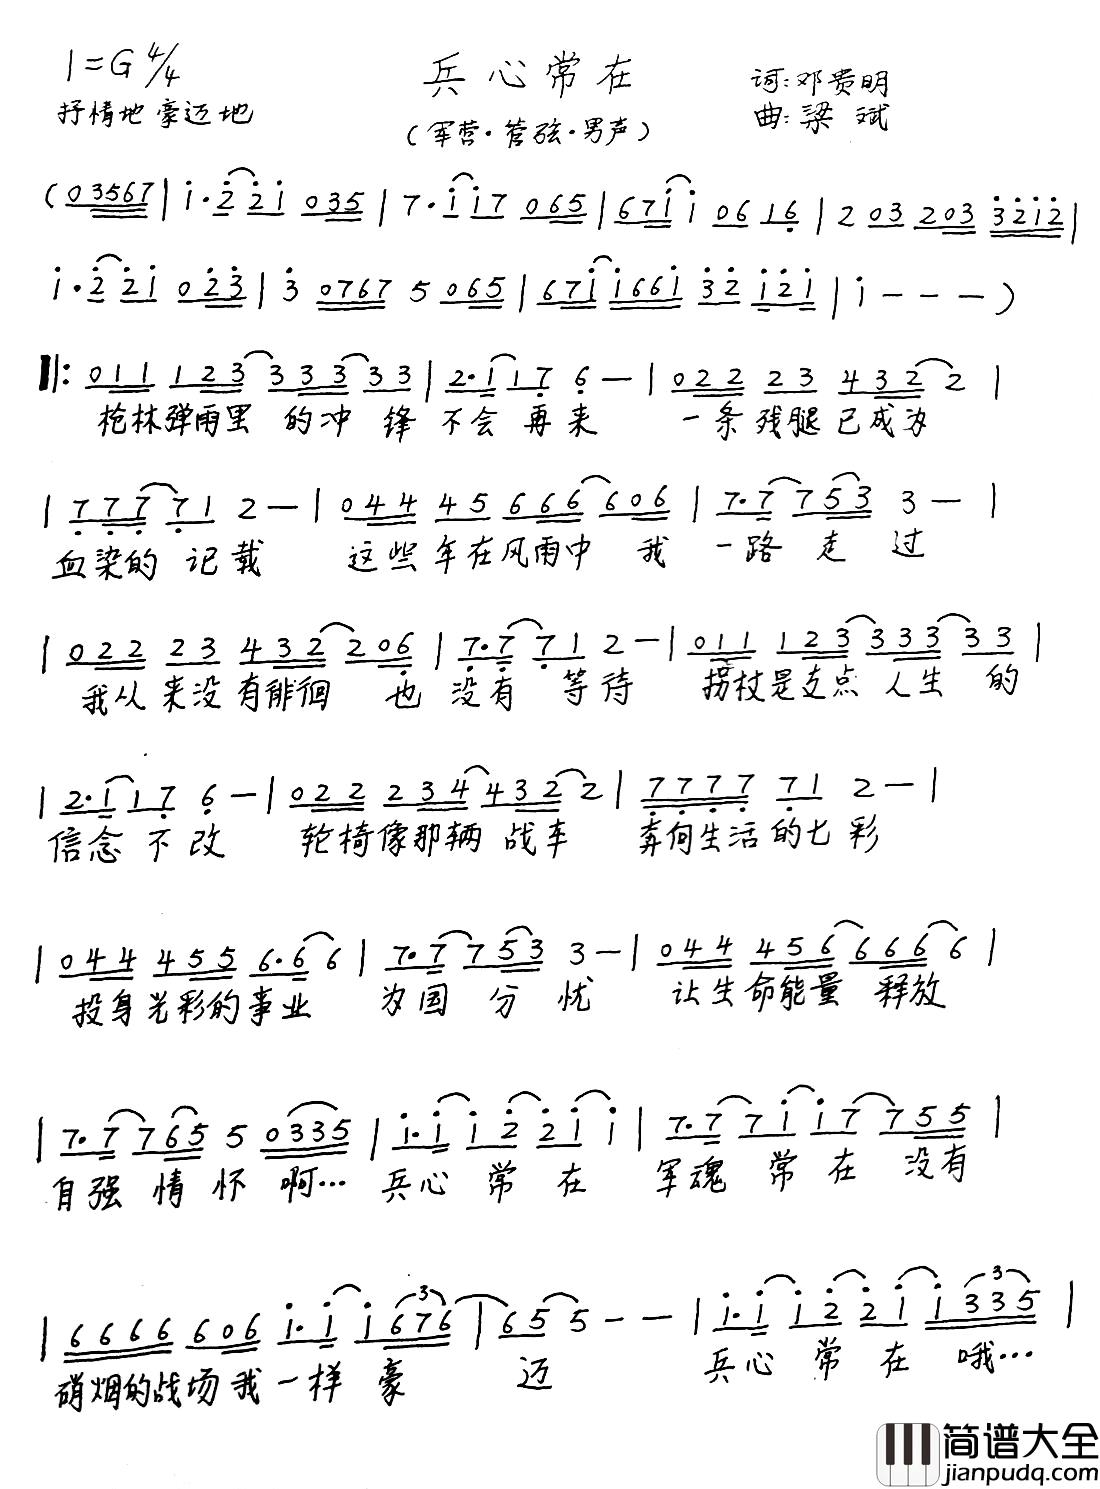 1=G 4/4
兵心常在
词:邓贵明
抒情地 豪迈地
(军营·管弦·男声)
曲:梁斌
(03567|i·2 2i 035|7·i i7 065|67i i 06 16|2 03 203 32i2|
i·2 2i 023|3 0767 5 065|67i i66i 32 i2i|i - - -)
‖: 011 123 333 33|2·1 17 6 —|022 23 432 2|
枪林弹雨里 的冲 锋 不会 再来 一条残腿已成为
|777 71 2 —|044 45 666 606|7·7 753 3 —|
血染的 记载 这些年在风雨中 我 一路 走 过
|022 23 432 206|7·7 71 2 —|011 123 333 33|
我从来没有徘徊 也 没有 等待 拐杖是支点 人生 的
|2·1 17 6 —|022 234 432 2|7777 71 2 —|
信念 不改 轮椅像那辆 战车 奔向生活的七彩
|044 455 6·6 6|7·7 753 3 —|044 456 666 6|
投身光彩的事业 为国 分 忧 让生命能量 释放
|7·7 765 5 0335|i·i i2 2i i|7·7 7i i7 755|
自强 情 怀 啊… 兵心 常 在 军魂 常 在 没有
|6666 606 i·i i676|65 5 - -|i·i i2 2i i335|
3
3
硝烟的战场我一样 豪 迈 兵心 常 在 哦…
简谱大全
jianpudq.com